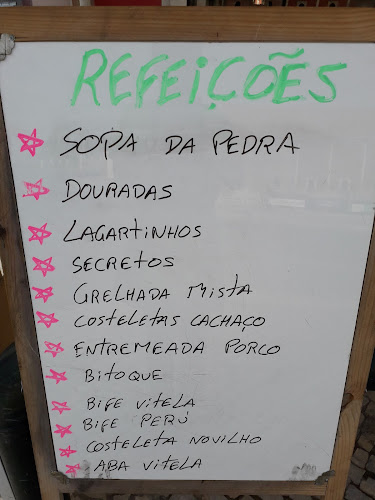 REFEIÇÕES
SOPA DA PEDRA
DOURADAS
LAGARTINHOS
SECRETOS
GRELHADA MISTA
COSTELETAS CACHAÇO
ENTREMEADA PORCO
BITOQUE
BIFE VITELA
BIFE PERÚ
COSTELETA NOVILHO
ABA VITELA